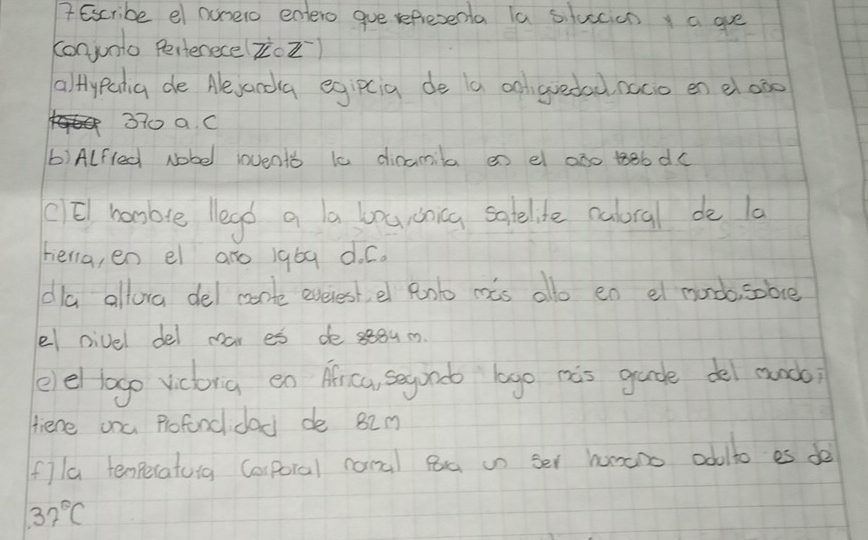 7 Escribe el número entero que representa la situación y a que
conjunto Pertenece (Z⁺o Z⁻)
a) Hypatia de Alejandría egipcia de la antiguedad, nacio en el año
370 a.C
b) ALfred Nobel inventó la dinamita en el año dC
c) El hombre llegó a la luna, única satelite natural de la
tierra, en el año 1969 d.C.
d la altura del monte everest, el Punto más alto en el mundo, sobre
el nivel del mar es de 8884 m.
e) el lago victoria en África, segundo lago más grande del mundo;
tiene una Profundidad de 82m
f) la temperatura Corporal normal Para un ser humano adulto es de
37°C